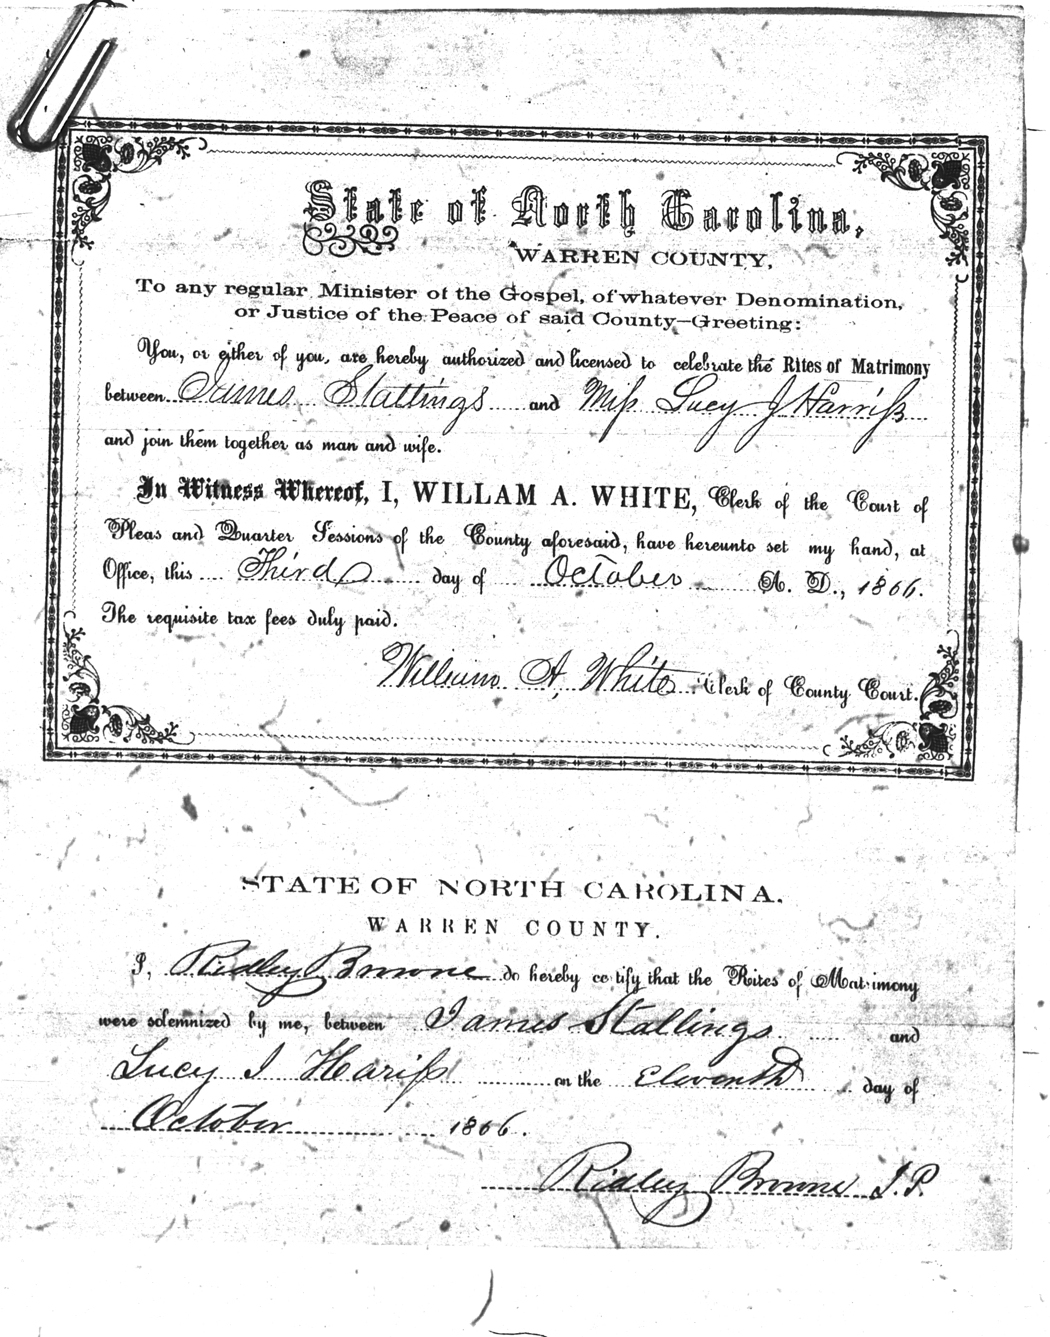 State of North Carolina,
WARREN COUNTY,
To any regular Minister of the Gospel, of whatever Denomination,
or Justice of the Peace of said County—Greeting:
You, or either of you, are hereby authorized and licensed to celebrate the Rites of Matrimony
between James Stallings and Miſs Lucy J Harriſs
and join them together as man and wife.
In Witness Whereof, I, WILLAM A. WHITE, Clerk of the Court of
Pleas and Quarter Sessions of the County aforesaid, have hereunto set my hand, at
Office, this Third day of October A. D., 1866.
The requisite tax fees duly paid.
William A, White Clerk of County Court.
STATE OF NORTH CAROLINA.
WARREN COUNTY.
I, Ridley Browne do hereby certify that the Rites of Matrimony
were solemnized by me, between James Stallings and
Lucy J Hariſs on the Eleventh day of
October 1866.
Ridley Browne J.P.